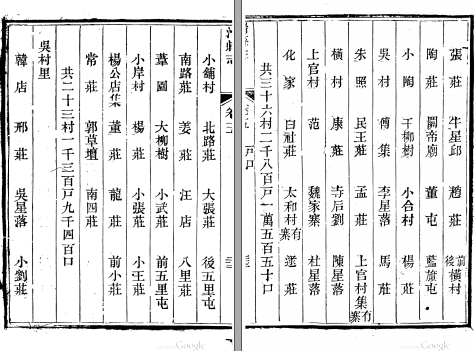 張莊 牛星邱 趙莊 前後橫村
陶莊 關帝廟 董屯 藍旗屯
小陶 干柳樹 小合村 楊莊
吳村 傅集 李星落 馬莊
朱照 民王莊 孟莊 上官村集有寨
橫村 康莊 寺后劉 陳星落
上官村 范 魏家寨 杜星落
化家 白祉莊 太和村有寨 逯莊
共三十六村二千八百戶一萬五百五十口
卷五 戶口
小舖村 北路莊 大張莊 後五里屯
南路莊 姜莊 汪店 八里莊
葦園 大柳樹 小武莊 前五里屯
小岸村 楊莊 小張莊 小王莊
楊公店集 董莊 龍莊 前小莊
常莊 郭草壇 南四莊
共二十三村一千三百戶九千四百口
吳村里
韓店 邢莊 吳星落 小劉莊
Google
Google